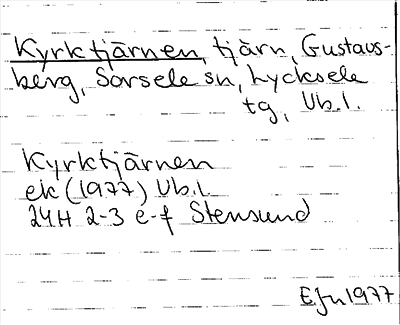 Kyrktjärnen, tjärn, Gustavs-
berg, Sorsele sn, Lycksele
tg, Vb.l.
Kyrktjärnen
ek (1977) Vb.l.
24H 2-3 e-f Stensund
EJn 1977